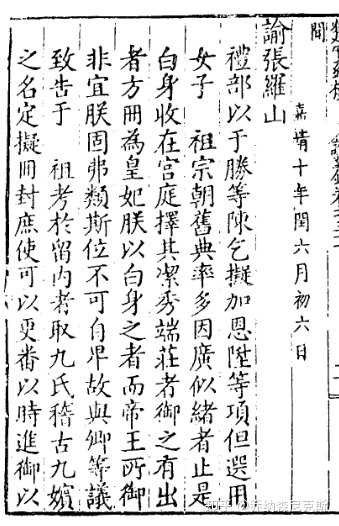 諭張羅山
嘉靖十年閏六月初六日
禮部以于勝等陳乞擬加恩陞等項但選用
女子　祖宗朝舊典率多因廣似緒者止是
白身收在宮庭擇其潔秀端莊者御之有出
者方冊為皇妃朕以白身之者而帝王所御
非宜朕固弗類斯位不可自卑故與卿等議
致告于　祖考於留内考取九氏稽古九嬪
之名定擬冊封庶使可以更番以時進御以